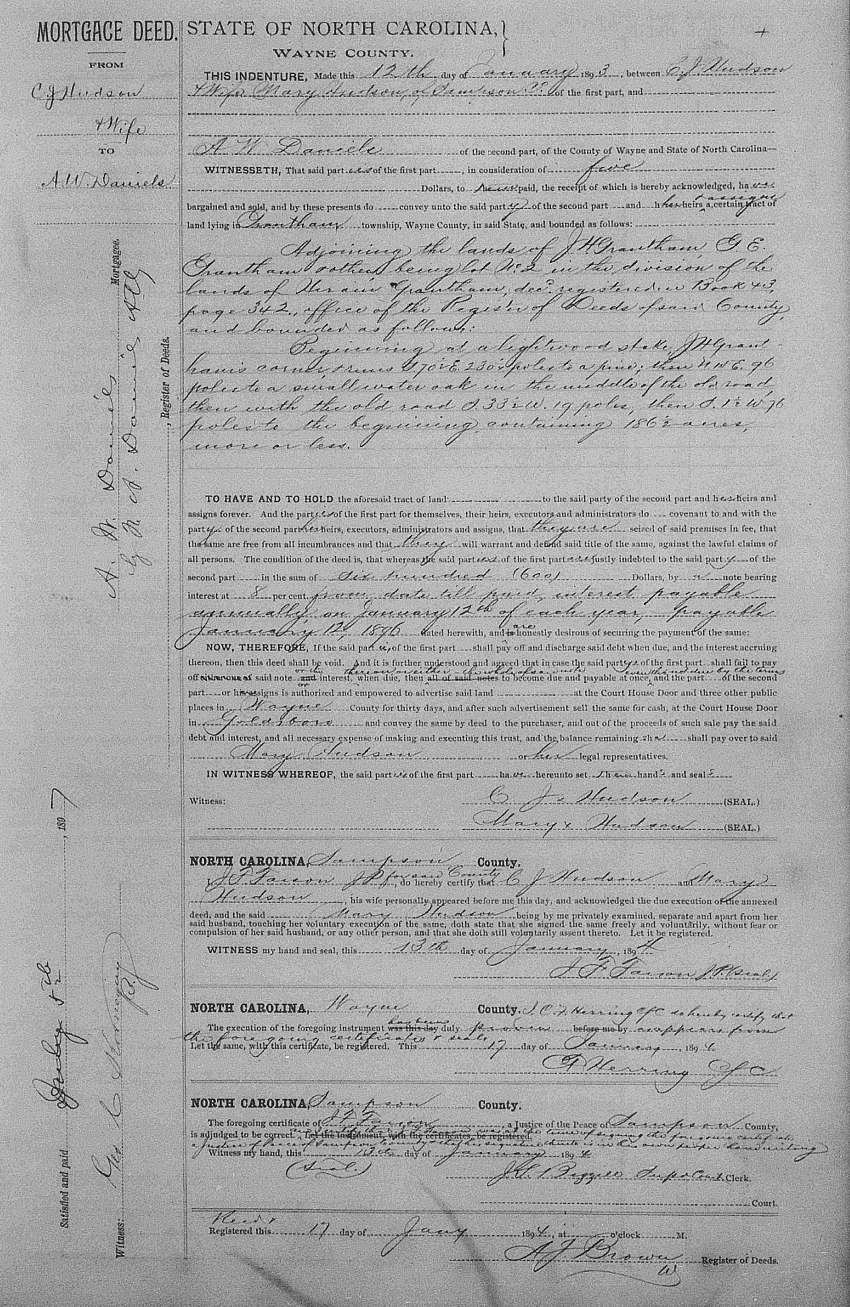 MORTGAGE DEED.
FROM
C J Hudson
& Wife
TO
A. W. Daniels
STATE OF NORTH CAROLINA,
WAYNE COUNTY.
THIS INDENTURE, Made this 12th day of January 1893, between C J Hudson
& Wife Mary Hudson, of Sampson Co of the first part, and
A W Daniels of the second part, of the County of Wayne and State of North Carolina—
WITNESSETH, That said parties of the first part, in consideration of five
Dollars, to paid, the receipt of which is hereby acknowledged, have
bargained and sold, and by these presents do convey unto the said party of the second part and his heirs & assigns a certain tract of
land lying in Grantham township, Wayne County, in said State, and bounded as follows:
Adjoining the lands of J H Grantham, G E.
Grantham & others being lot No 2 in the division of the
lands of Hiram Grantham, decd registered in Book 43,
page 342, office of the Register of Deeds of said County,
and bounded as follows:
Beginning at a lightwood stake, J H Grant-
ham's corner & runs S 70½ E. 230½ poles to a pine; then N W E. 96
poles to a small water oak in the middle of the old road,
then with the old road S. 33½ W. 19 poles, then S. 1½ W 76
poles to the beginning containing 186½ acres,
more or less.
TO HAVE AND TO HOLD the aforesaid tract of land to the said party of the second part and his heirs and
assigns forever. And the parties of the first part for themselves, their heirs, executors and administrators do covenant to and with the
party of the second part his heirs, executors, administrators and assigns, that they are seized of said premises in fee, that
the same are free from all incumbrances and that they will warrant and defend said title of the same, against the lawful claims of
all persons. The condition of the deed is, that whereas the said parties of the first part are justly indebted to the said party of the
second part in the sum of six hundred (600) Dollars, by a note bearing
interest at 8 per cent. from date till paid, interest payable
annually on January 12th of each year, payable
January 12, 1896 dated herewith, and is are honestly desirous of securing the payment of the same:
NOW, THEREFORE, If the said parties of the first part shall pay off and discharge said debt when due, and the interest accruing
thereon, then this deed shall be void. And it is further understood and agreed that in case the said partys of the first part shall fail to pay
off said note and interest, when due, then all of said notes to become due and payable at once, and the part of the second
part or his assigns is authorized and empowered to advertise said land at the Court House Door and three other public
places in Wayne County for thirty days, and after such advertisement sell the same for cash, at the Court House Door
in Goldsboro and convey the same by deed to the purchaser, and out of the proceeds of such sale pay the said
debt and interest, and all necessary expense of making and executing this trust, and the balance remaining shall pay over to said
Mary Hudson or her legal representatives.
IN WITNESS WHEREOF, the said parties of the first part have hereunto set their hands and seals
Witness: C J Hudson (SEAL.)
Mary x Hudson (SEAL.)
NORTH CAROLINA, Sampson County.
I, J. F. Faison J P for said County, do hereby certify that C J Hudson and Mary
Hudson, his wife personally appeared before me this day, and acknowledged the due execution of the annexed
deed, and the said Mary Hudson being by me privately examined, separate and apart from her
said husband, touching her voluntary execution of the same, doth state that she signed the same freely and voluntarily, without fear or
compulsion of her said husband, or any other person, and that she doth still voluntarily assent thereto. Let it be registered.
WITNESS my hand and seal, this 13th day of January, 1894
J F Faison J.P. (Seal)
NORTH CAROLINA, Wayne County. I, C. F. Herring CSC do hereby certify that
The execution of the foregoing instrument has been was this day duly proven before me by as appears from
the foregoing certificates & seals
Let the same, with this certificate, be registered. This 17 day of January, 1894.
CF Herring CSC
NORTH CAROLINA, Sampson County.
The foregoing certificate of J F Faison a Justice of the Peace of Sampson County,
is adjudged to be correct. Let the instrument, with the certificates, be registered.
Witness my hand, this 13th day of January 1894
(Seal.) Supr Court Clerk.
Court.
Recd &
Registered this 17 day of Jany 1894, at o'clock M.
A J Brown Register of Deeds.
Satisfied and paid July 8th, 1897
A. W. Daniels Mortgagee.
, Register of Deeds.
Witness: Geo. C. Kornegay